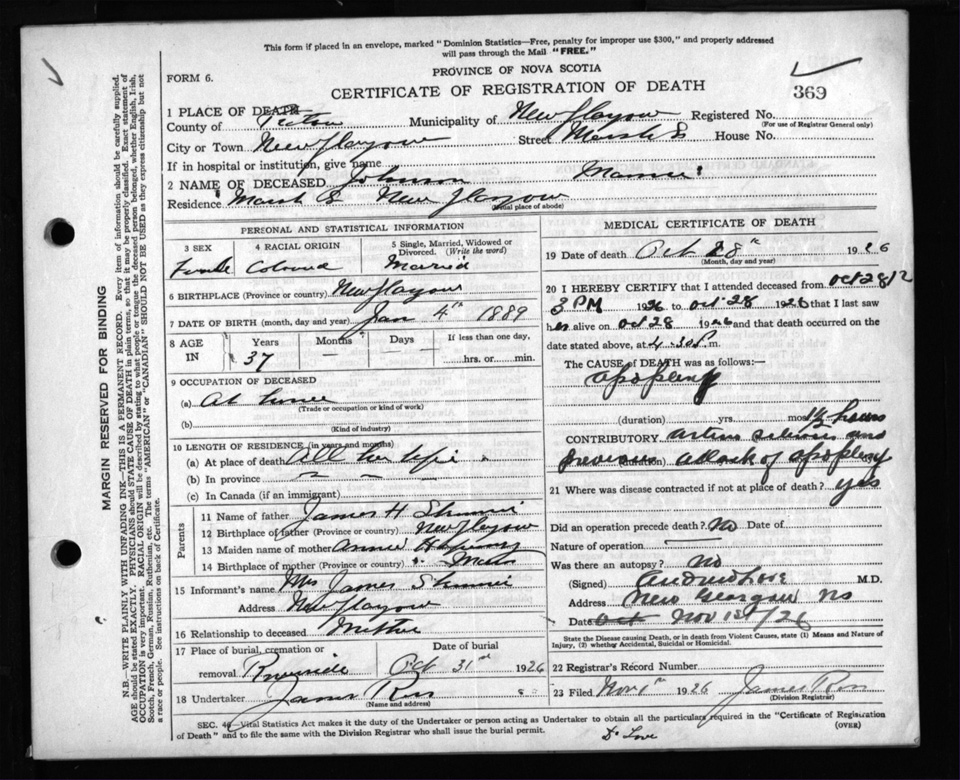 This form if placed in an envelope, marked "Dominion Statistics—Free, penalty for improper use $300," and properly addressed
will pass through the Mail "FREE."
PROVINCE OF NOVA SCOTIA
FORM 6.
CERTIFICATE OF REGISTRATION OF DEATH
369
1 PLACE OF DEATH
County of Pictou Municipality of New Glasgow Registered No.
(For use of Registrar General only)
City or Town New Glasgow Street Marsh S House No.
If in hospital or institution, give name
2 NAME OF DECEASED Johnson
Residence Marsh S New Glasgow
(Usual place of abode)
PERSONAL AND STATISTICAL INFORMATION
3 SEX 4 RACIAL ORIGIN 5 Single, Married, Widowed or Divorced. (Write the word)
Female Colored Married
6 BIRTHPLACE (Province or country) New Glasgow
7 DATE OF BIRTH (month, day and year) Jan 4th 1889
8 AGE IN Years Months Days If less than one day,
37 — — hrs. or min.
9 OCCUPATION OF DECEASED
(a) At home
(Trade or occupation or kind of work)
(b)
(Kind of industry)
10 LENGTH OF RESIDENCE (in years and months)
(a) At place of death All her life
(b) In province
(c) In Canada (if an immigrant)
Parents
11 Name of father James H
12 Birthplace of father (Province or country) New Glasgow
13 Maiden name of mother Annie
14 Birthplace of mother (Province or country)
15 Informant's name Mrs James
Address New Glasgow
16 Relationship to deceased Mother
17 Place of burial, cremation or removal Date of burial
Riverside Oct 31st 1926
18 Undertaker James Ross
(Name and address)
MEDICAL CERTIFICATE OF DEATH
19 Date of death Oct 28th 1926
(Month, day and year)
20 I HEREBY CERTIFY that I attended deceased from Oct 28/2
3 PM 1926 to Oct 28 1926 that I last saw
her alive on Oct 28 1926 and that death occurred on
date stated above, at 4.30 P.m.
The CAUSE of DEATH was as follows:—
apoplexy
(duration) yrs. mos. 1½ hours
CONTRIBUTORY arterio sclerosis and
(duration) previous attack of apoplexy
21 Where was disease contracted if not at place of death? yes
Did an operation precede death? no Date of
Nature of operation
Was there an autopsy? No
(Signed) Andrew Love M.D.
Address New Glasgow NS
Date Oct Nov 1st/26
State the Disease causing Death, or in death from Violent Causes, state (1) Means and Nature of
Injury, (2) whether Accidental, Suicidal or Homicidal.
22 Registrar's Record Number
23 Filed Nov 1st 1926 James Ross
(Division Registrar)
SEC. 4—Vital Statistics Act makes it the duty of the Undertaker or person acting as Undertaker to obtain all the particulars required in the "Certificate of Registration
of Death" and to file the same with the Division Registrar who shall issue the burial permit.
(OVER)
Dr Love
MARGIN RESERVED FOR BINDING
N.B.—WRITE PLAINLY WITH UNFADING INK—THIS IS A PERMANENT RECORD. Every item of information should be carefully supplied.
AGE should be stated EXACTLY. PHYSICIANS should STATE CAUSE OF DEATH in plain terms, so that it may be properly classified. Exact statement of
OCCUPATION is very important. RACIAL ORIGIN will be described by stating to what people or tongue the deceased person belonged, whether English, Irish,
Scotch, French, German, Russian, Ruthenian, etc. The terms "AMERICAN" or "CANADIAN" SHOULD NOT BE USED as they express citizenship but not
a race or people. See instructions on back of Certificate.